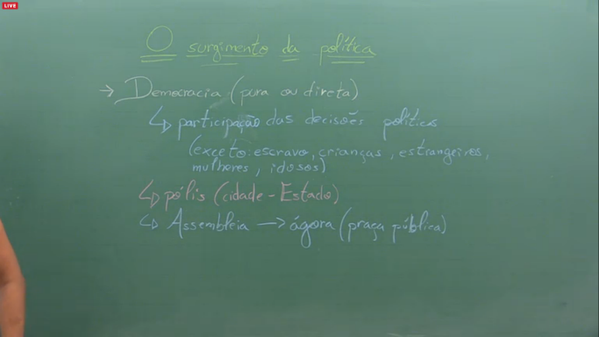 LIVE
O surgimento da política
→ Democracia (pura ou direta)
↳ participação das decisões políticas
(exceto: escravo, crianças, estrangeiros,
mulheres, idosos)
↳ pólis (cidade-Estado)
↳ Assembleia → ágora (praça pública)